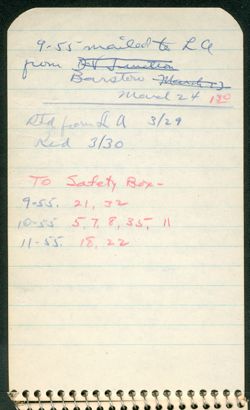 9-55 mailed to L A
from D V Junction
Barstow March 23
March 24 1 30
Rtd from L A 3/29
Recd 3/30
To Safety Box-
9-55. 21, 32
10-55 5, 7, 8, 35, 11
11-55. 18, 22